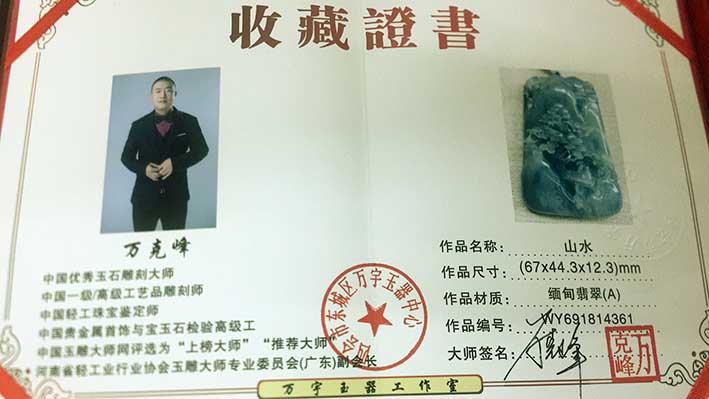 收藏證書
万克峰
中国优秀玉石雕刻大师
中国一级/高级工艺品雕刻师
中国轻工珠宝鉴定师
中国贵金属首饰与宝玉石检验高级工
中国玉雕大师网评选为“上榜大师”“推荐大师”
河南省轻工业行业协会玉雕大师专业委员会(广东)副会长
作品名称: 山水
作品尺寸: (67x44.3x12.3)mm
作品材质: 缅甸翡翠(A)
作品编号: WY691814361
大师签名:
万克峰
会市东城区万宇玉器中心
万宇玉器工作室